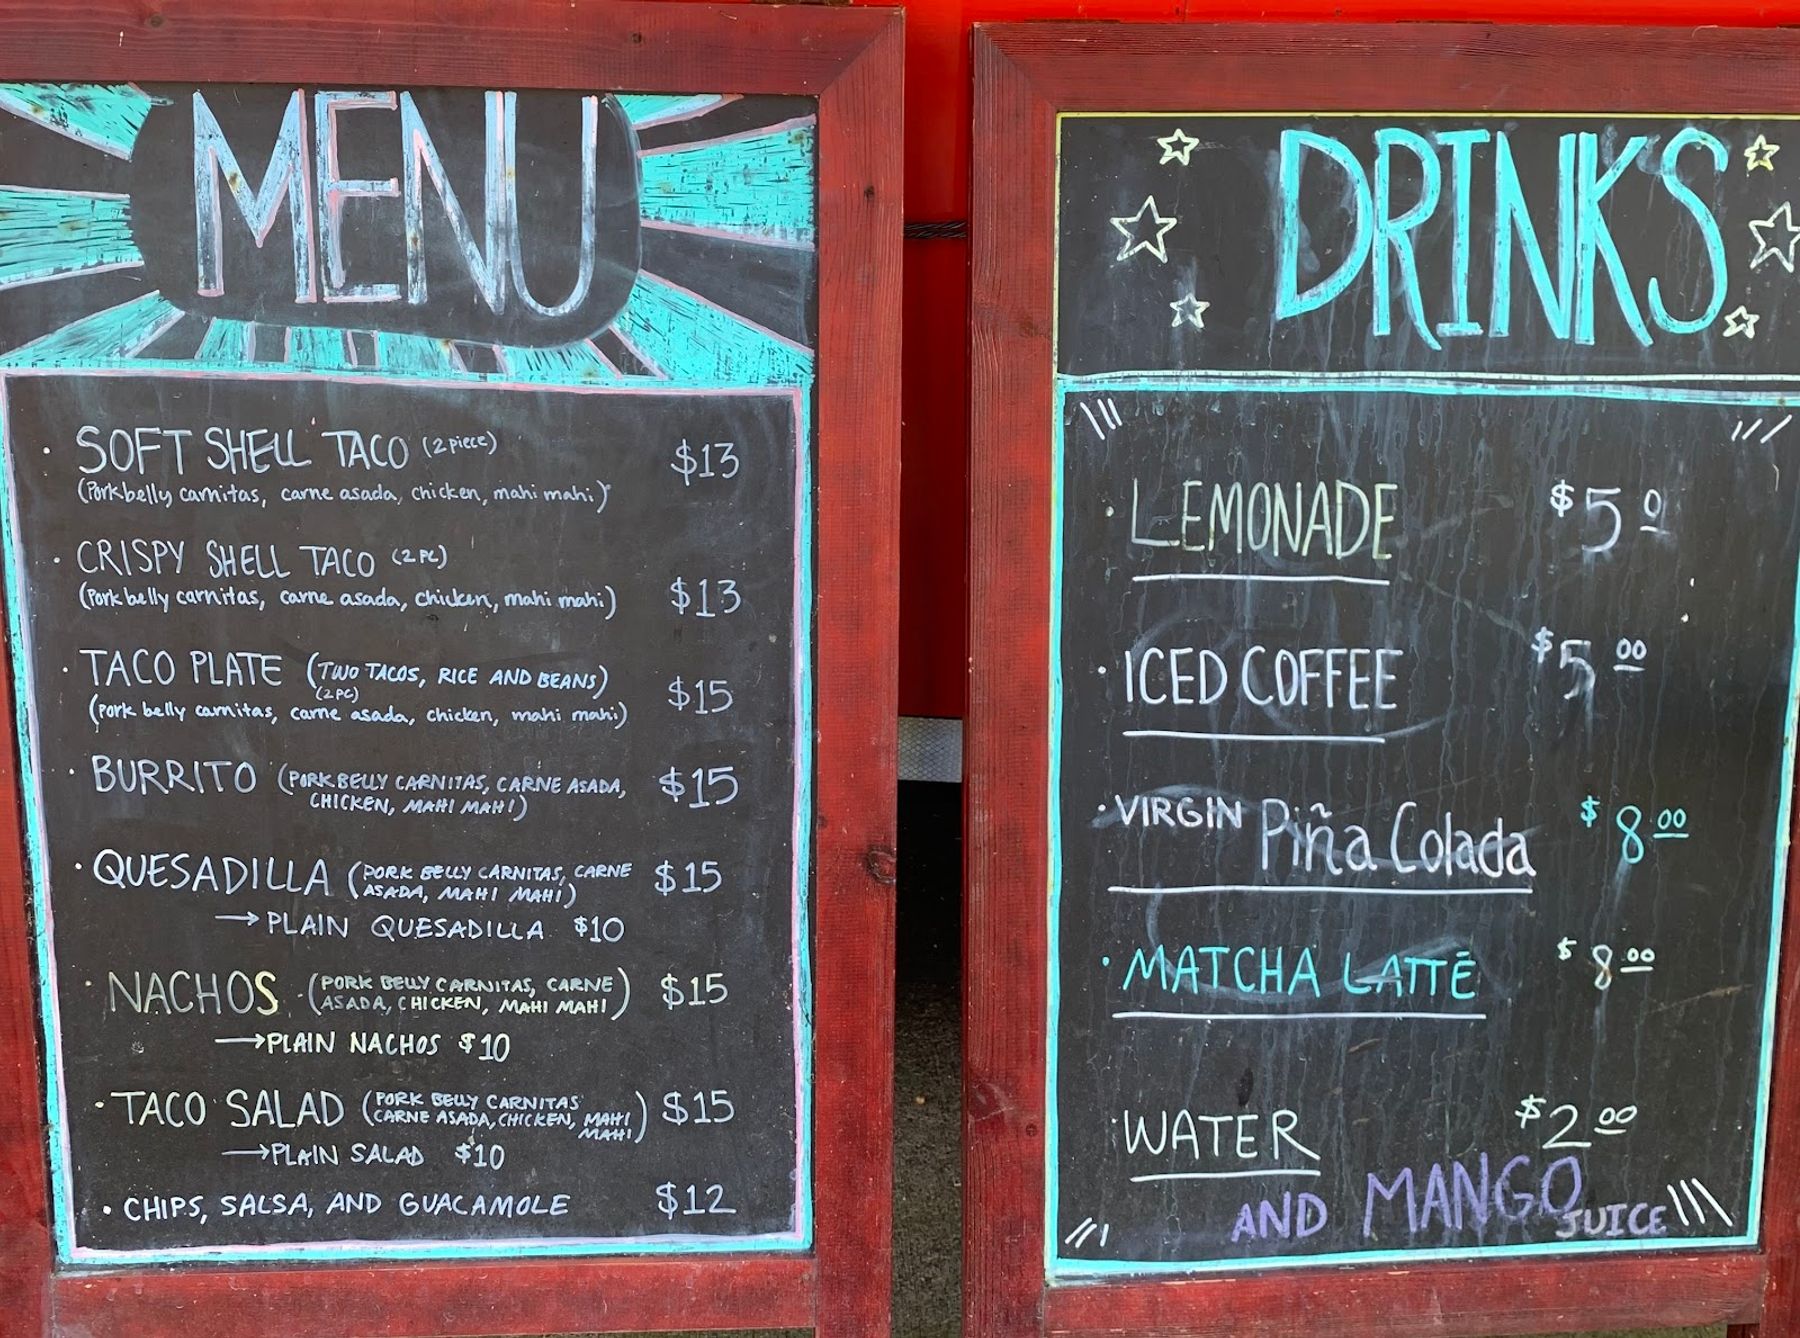 MENU
· SOFT SHELL TACO (2 piece) $13
(Porkbelly carnitas, carne asada, chicken, mahi mahi)
· CRISPY SHELL TACO (2 PC)
(Pork belly carnitas, carne asada, chicken, mahi mahi) $13
· TACO PLATE (TWO TACOS, RICE AND BEANS)
(2 PC)
(Pork belly carnitas, carne asada, chicken, mahi mahi) $15
· BURRITO (PORK BELLY CARNITAS, CARNE ASADA, $15
CHICKEN, MAHI MAHI)
· QUESADILLA (PORK BELLY CARNITAS, CARNE $15
ASADA, MAHI MAHI)
→ PLAIN QUESADILLA $10
· NACHOS (PORK BELLY CARNITAS, CARNE $15
ASADA, CHICKEN, MAHI MAHI)
→ PLAIN NACHOS $10
· TACO SALAD (PORK BELLY CARNITAS $15
CARNE ASADA, CHICKEN, MAHI
MAHI)
→ PLAIN SALAD $10
· CHIPS, SALSA, AND GUACAMOLE $12
DRINKS
· LEMONADE $5 0
· ICED COFFEE $5 00
· VIRGIN Piña Colada $8 00
· MATCHA LATTĒ $8 00
· WATER $2 00
AND MANGO JUICE